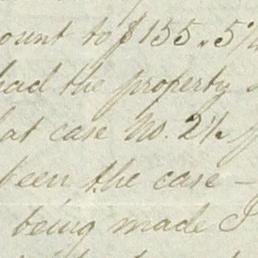 ount to $155.5
had the property
at case No. 2½
been the case –
being made I